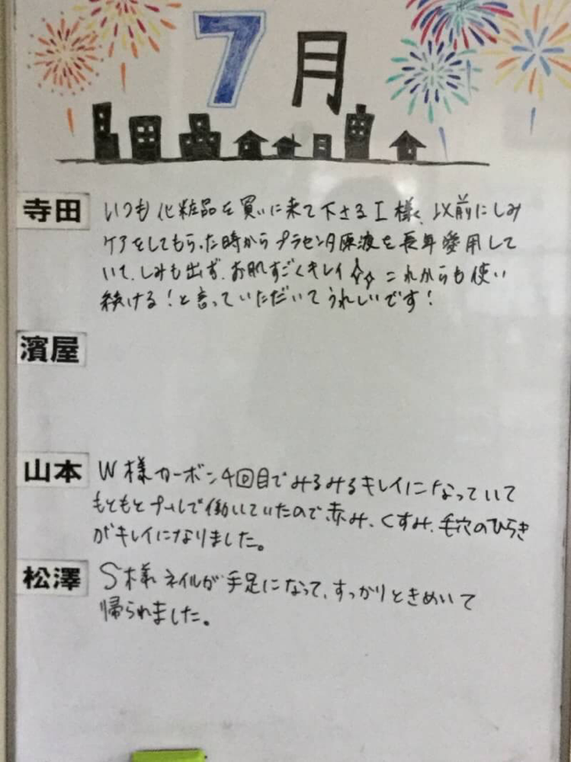 7月
寺田 いつも化粧品を買いに来て下さるI様、以前にしみ
ケアをしてもらった時からプラセンタ原液を長年愛用して
いて、しみも出ず、お肌すごくキレイ☆☆これからも使い
続ける！と言っていただいてうれしいです！
濱屋
山本 W様カーボン4回目でみるみるキレイになっていて
もともとプールで働いていたので赤み、くすみ、毛穴のひらき
がキレイになりました。
松澤 S様ネイルが手足になって、すっかりときめいて
帰られました。